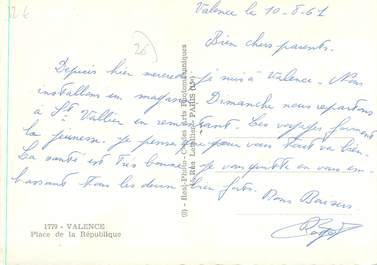 Valence le 10-8-61
26
Bien chers parents.
Depuis hier mercredi je suis à Valence. Nous
installons en magasin. Dimanche nous repartons
à St Vallier en remontant. Les voyages forment
la jeunesse. Je pense que pour vous tout va bien.
La santé est très bonne. Je vous quitte en vous em-
brassant tous les deux bien fort.
Bons Baisers
Roger
1779 - VALENCE
Place de la République
PARIS